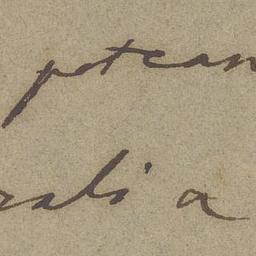 potean
rali a